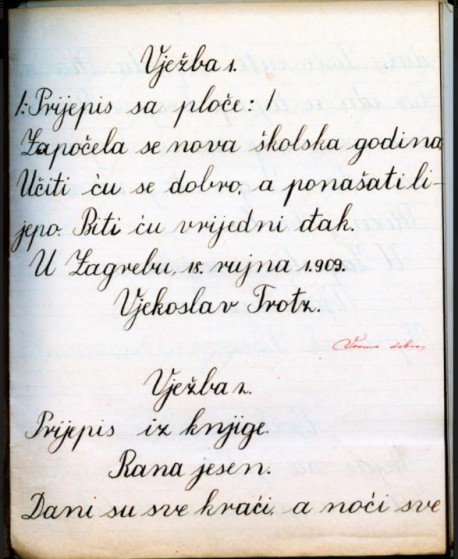 Vježba 1.
/: Prijepis sa ploče: /
Započela se nova školska godina
Učiti ću se dobro, a ponašati li-
jepo. Biti ću vrijedni đak.
U Zagrebu, 15. rujna 1.909.
Vjekoslav Trotz.
Veoma dobro,
Vježba 2.
Prijepis iz knjige.
Rana jesen.
Dani su sve kraći, a noći sve